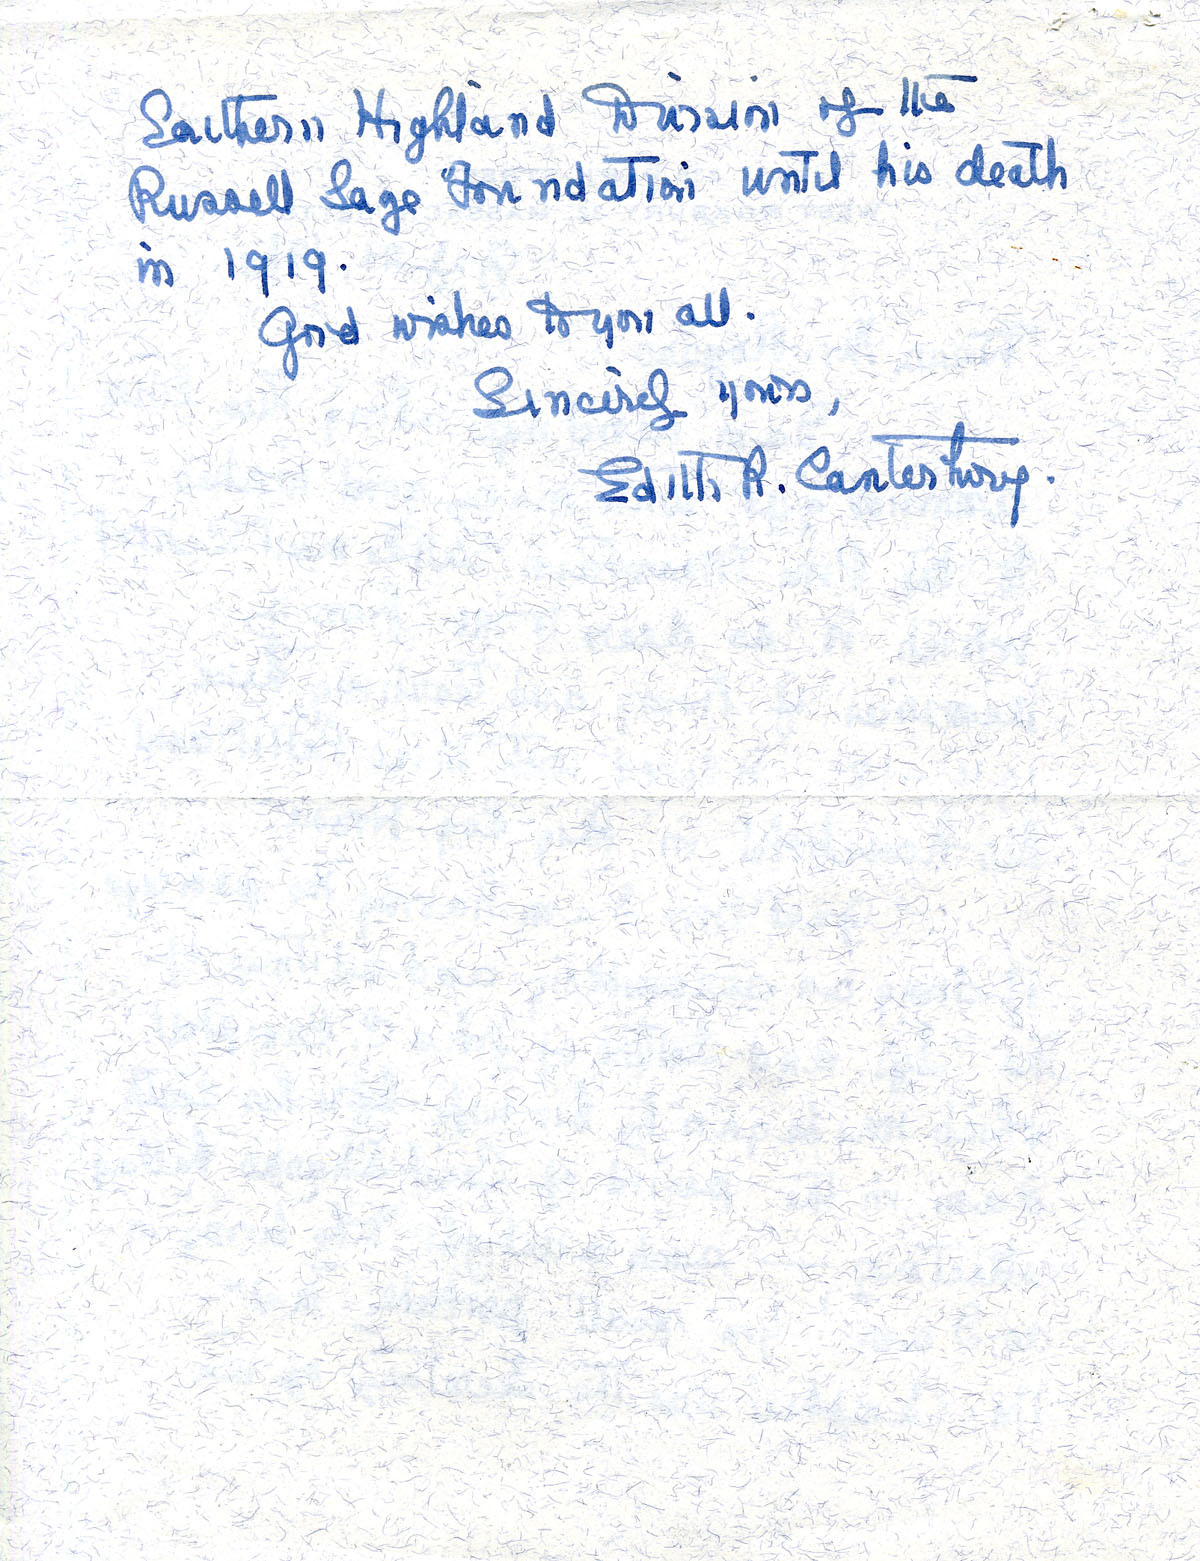 Southern Highland Division of the
Russell Sage Foundation until his death
in 1919.
Good wishes to you all.
Sincerely yours,
Edith R. Canterbury.